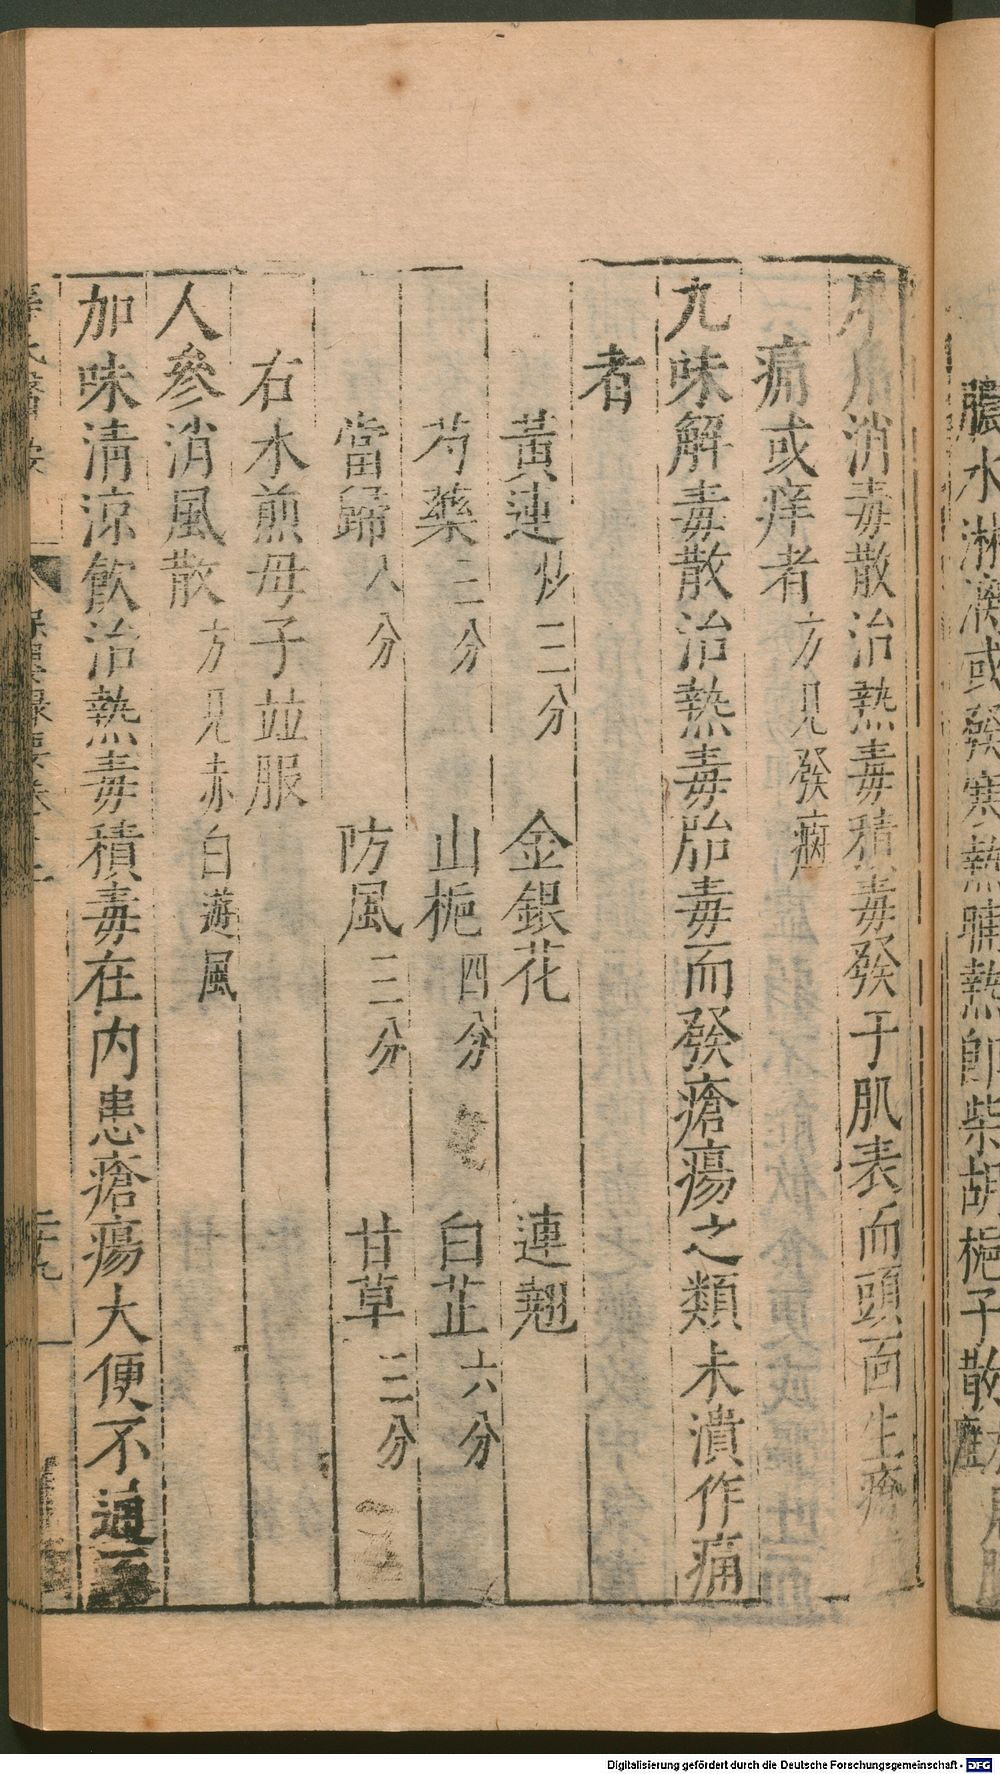 膿水淋漓或發寒熱晡熱卽柴胡梔子散
消毒散治熱毒積毒發于肌表而頭面生瘡
痛或痒者方見發癍
九味解毒散治熱毒胎毒而發瘡瘍之類未潰作痛
者
黃連炒三分 金銀花 連翹
芍藥二分 山梔四分 白芷六分
當歸八分 防風三分 甘草三分
右水煎母子並服
人參消風散方見赤白遊風
加味清涼飮治熱毒積毒在內患瘡瘍大便不通
二十九
Digitalisierung gefördert durch die Deutsche Forschungsgemeinschaft - DFG